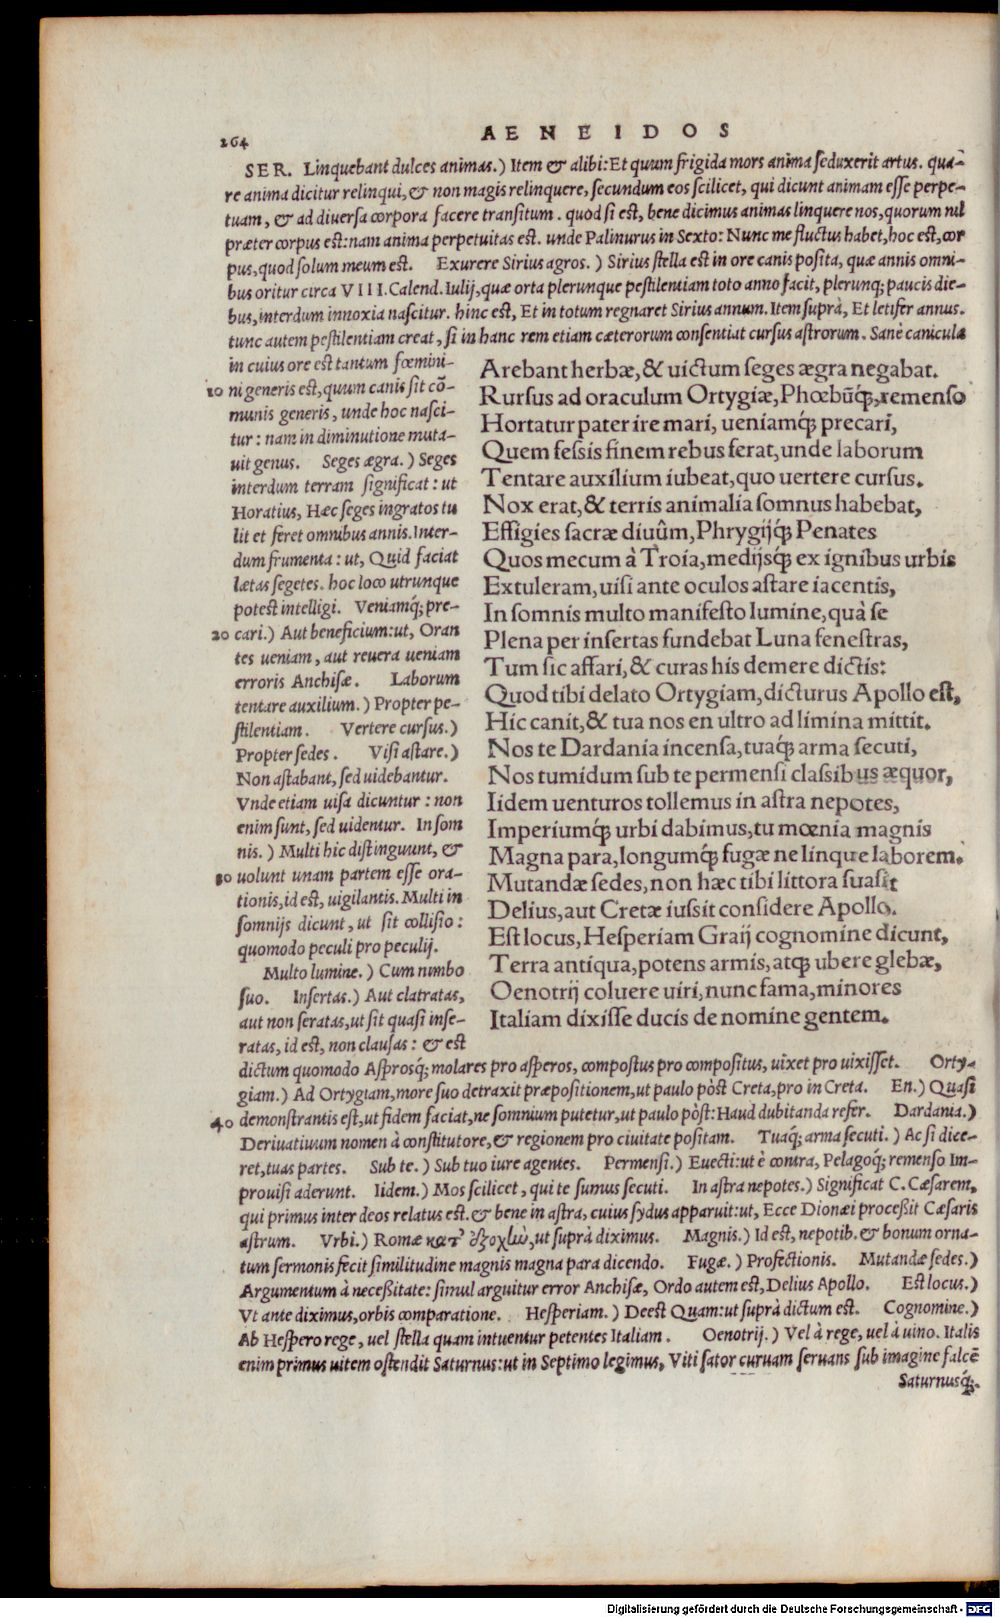 264
AENEIDOS
SER. Linquebant dulces animas.) Item & alibi: Et quum frigida mors anima seduxerit artus. qua-
re anima dicitur relinqui, & non magis relinquere, secundum eos scilicet, qui dicunt animam esse perpe-
tuam, & ad diuersa corpora facere transitum. quod si est, bene dicimus animas linquere nos, quorum nil
præter corpus est: nam anima perpetuitas est. unde Palinurus in Sexto: Nunc me fluctus habet, hoc est, cor
pus, quod solum meum est. Exurere Sirius agros.) Sirius stella est in ore canis posita, quæ annis omni-
bus oritur circa VIII. Calend. Iulij, quæ orta plerunque pestilentiam toto anno facit, plerunq; paucis die-
bus, interdum innoxia nascitur. hinc est, Et in totum regnaret Sirius annum. Item suprà, Et letifer annus.
tunc autem pestilentiam creat, si in hanc rem etiam cæterorum consentiat cursus astrorum. Sanè canicula
in cuius ore est tantum fœmini-
10 ni generis est, quum canis sit cō-
munis generis, unde hoc nasci-
tur: nam in diminutione muta-
uit genus. Seges ægra.) Seges
interdum terram significat: ut
Horatius, Hæc seges ingratos tu
lit et feret omnibus annis. Inter-
dum frumenta: ut, Quid faciat
lætas segetes. hoc loco utrunque
potest intelligi. Veniamq́; pre-
20 cari.) Aut beneficium: ut, Oran
tes ueniam, aut reuera ueniam
erroris Anchisæ. Laborum
tentare auxilium.) Propter pe-
stilentiam. Vertere cursus.)
Propter sedes. Visi astare.)
Non astabant, sed uidebantur.
Vnde etiam uisa dicuntur: non
enim sunt, sed uidentur. In som
nis.) Multi hic distinguunt, &
30 uolunt unam partem esse ora-
tionis, id est, uigilantis. Multi in
somnijs dicunt, ut sit collisio:
quomodo peculi pro peculij.
Multo lumine.) Cum nimbo
suo. Insertas.) Aut clatratas,
aut non seratas, ut sit quasi inse-
ratas, id est, non clausas: & est
Arebant herbæ, & uictum seges ægra negabat.
Rursus ad oraculum Ortygiæ, Phœbūq́;, remenso
Hortatur pater ire mari, ueniamq́; precari,
Quem fessis finem rebus ferat, unde laborum
Tentare auxilium iubeat, quo uertere cursus.
Nox erat, & terris animalia somnus habebat,
Effigies sacræ diuûm, Phrygijq́; Penates
Quos mecum à Troia, medijsq́; ex ignibus urbis
Extuleram, uisi ante oculos astare iacentis,
In somnis multo manifesto lumine, quà se
Plena per insertas fundebat Luna fenestras,
Tum sic affari, & curas his demere dictis:
Quod tibi delato Ortygiam, dicturus Apollo est,
Hic canit, & tua nos en ultro ad limina mittit.
Nos te Dardania incensa, tuaq́; arma secuti,
Nos tumidum sub te permensi classibus æquor,
Iidem uenturos tollemus in astra nepotes,
Imperiumq́; urbi dabimus, tu mœnia magnis
Magna para, longumq́; fugæ ne linque laborem.
Mutandæ sedes, non hæc tibi littora suasit
Delius, aut Cretæ iussit considere Apollo.
Est locus, Hesperiam Graij cognomine dicunt,
Terra antiqua, potens armis, atq; ubere glebæ,
Oenotrij coluere uiri, nunc fama, minores
Italiam dixisse ducis de nomine gentem.
dictum quomodo Asprosq́; molares pro asperos, compostus pro compositus, uixet pro uixisset. Orty-
giam.) Ad Ortygiam, more suo detraxit præpositionem, ut paulo pòst Creta, pro in Creta. En.) Quasi
40 demonstrantis est, ut fidem faciat, ne somnium putetur, ut paulo pòst: Haud dubitanda refer. Dardania.)
Deriuatiuum nomen à constitutore, & regionem pro ciuitate positam. Tuaq́; arma secuti.) Ac si dice-
ret, tuas partes. Sub te.) Sub tuo iure agentes. Permensi.) Euecti: ut è contra, Pelagoq́; remenso Im-
prouisi aderunt. Iidem.) Mos scilicet, qui te sumus secuti. In astra nepotes.) Significat C. Cæsarem,
qui primus inter deos relatus est. & bene in astra, cuius sydus apparuit: ut, Ecce Dionæi processit Cæsaris
astrum. Vrbi.) Romæ κατ' ἐξοχὴν, ut suprà diximus. Magnis.) Id est, nepotib. & bonum orna-
tum sermonis fecit similitudine magnis magna para dicendo. Fugæ.) Profectionis. Mutandæ sedes.)
Argumentum à necessitate: simul arguitur error Anchisæ, Ordo autem est, Delius Apollo. Est locus.)
Vt ante diximus, orbis comparatione. Hesperiam.) Deest Quam: ut suprà dictum est. Cognomine.)
Ab Hespero rege, uel stella quam intuentur petentes Italiam. Oenotrij.) Vel à rege, uel à uino. Italis
enim primus uitem ostendit Saturnus: ut in Septimo legimus, Viti sator curuam seruans sub imagine falcē
Saturnusq́;.
Digitalisierung gefördert durch die Deutsche Forschungsgemeinschaft - DFG